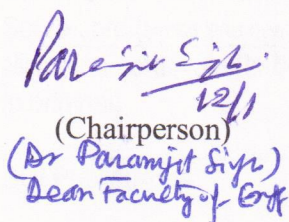 Paramjit Singh
12/1
(Chairperson)
(Dr Paramjit Singh)
Dean Faculty of Engg